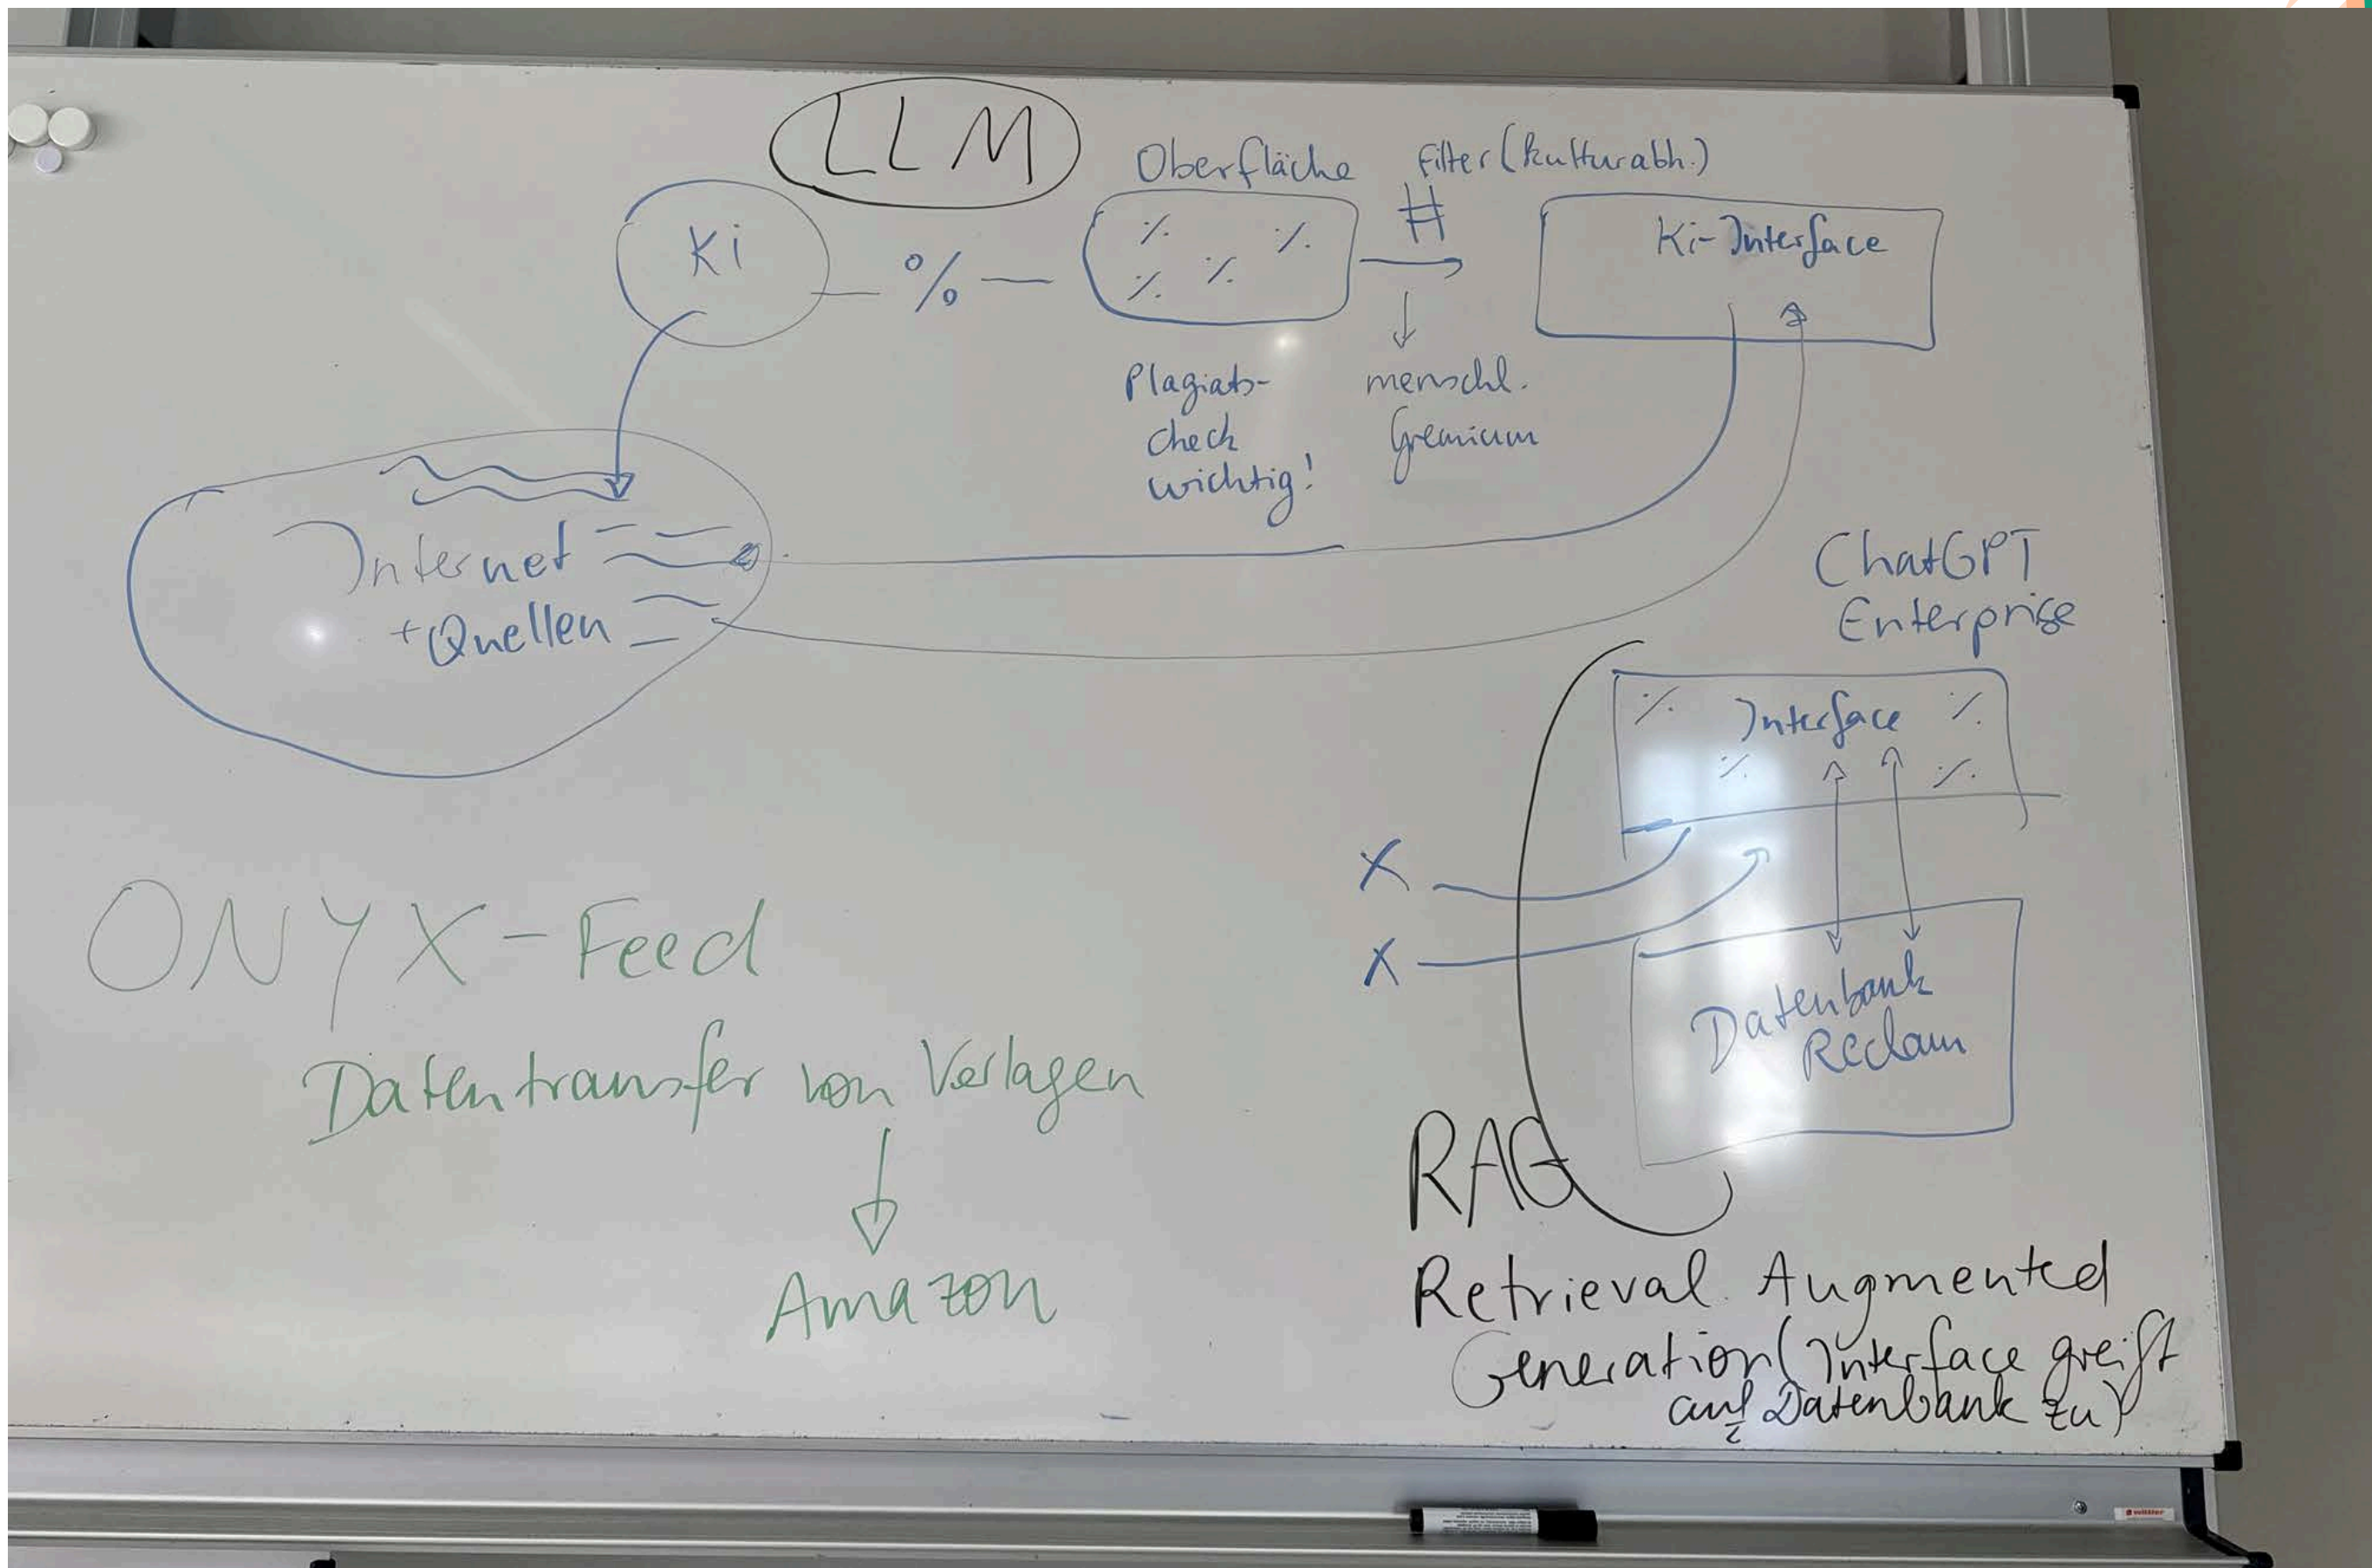 LLM
Oberfläche
Filter (kulturabh.)
Ki
%
٪ ٪ ٪ ٪
#
Ki-Interface
Plagiats-
check
wichtig!
menschl.
Gremium
Internet
+ Quellen
ChatGPT
Enterprise
٪ Interface ٪
٪ ٪
X
X
Datenbank
Reclam
ONYX-Feed
Datentransfer von Verlagen
Amazon
RAG
Retrieval Augmented
Generation (Interface greift
auf Datenbank zu)